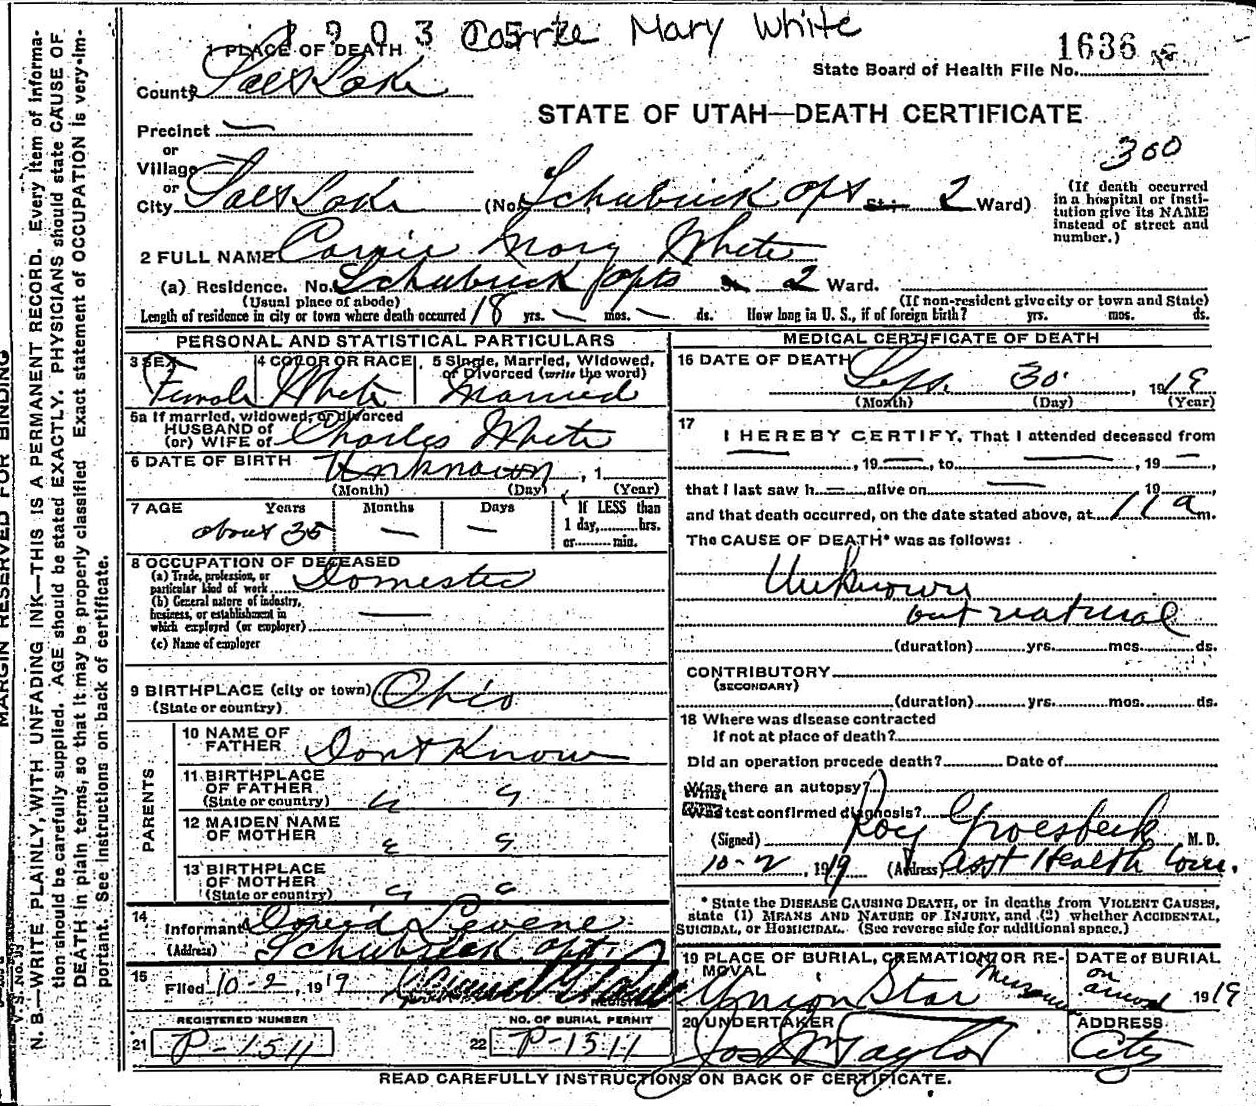 1903 Carrie Mary White
1 PLACE OF DEATH
1636
State Board of Health File No.
County Salt Lake
STATE OF UTAH—DEATH CERTIFICATE
Precinct —
or
Village
or
City Salt Lake (No. Schubrick Apts St.; 2 Ward)
300
(If death occurred in a hospital or institution give its NAME instead of street and number.)
2 FULL NAME Carrie Mary White
(a) Residence. No. Schubrick Apts St. 2 Ward.
(Usual place of abode) (If non-resident give city or town and State)
Length of residence in city or town where death occurred 18 yrs. — mos. — ds. How long in U. S., if of foreign birth? yrs. mos. ds.
PERSONAL AND STATISTICAL PARTICULARS
3 SEX Female
4 COLOR OR RACE White
5 Single, Married, Widowed, or Divorced (write the word) Married
5a If married, widowed, or divorced
HUSBAND of
(or) WIFE of Charles White
6 DATE OF BIRTH Unknown, 1
(Month) (Day) (Year)
7 AGE Years Months Days
about 35 — —
If LESS than
1 day,......hrs.
or......min.
8 OCCUPATION OF DECEASED
(a) Trade, profession, or
particular kind of work Domestic
(b) General nature of industry,
business, or establishment in
which employed (or employer) —
(c) Name of employer
9 BIRTHPLACE (city or town) Ohio
(State or country)
PARENTS
10 NAME OF FATHER Dont Know
11 BIRTHPLACE OF FATHER " "
(State or country)
12 MAIDEN NAME OF MOTHER " "
13 BIRTHPLACE OF MOTHER " "
(State or country)
14
Informant David Levene
(Address) Schubrick Apt.
15 Filed 10-2, 1919
REGISTERED NUMBER
21 P-1511
NO. OF BURIAL PERMIT
22 P-1511
MEDICAL CERTIFICATE OF DEATH
16 DATE OF DEATH Sept. 30, 1919
(Month) (Day) (Year)
17
I HEREBY CERTIFY, That I attended deceased from
—, 19—, to —, 19—,
that I last saw h — alive on — 19—,
and that death occurred, on the date stated above, at 11 a m.
The CAUSE OF DEATH* was as follows:
Unknown
but natural
(duration) yrs. mos. ds.
CONTRIBUTORY
(SECONDARY)
(duration) yrs. mos. ds.
18 Where was disease contracted
If not at place of death?
Did an operation precede death? Date of
Was there an autopsy?
What test confirmed diagnosis?
(Signed) Roy Groesbeck M. D.
10-2, 1919 (Address) Asst Health Com.
* State the DISEASE CAUSING DEATH, or in deaths from VIOLENT CAUSES,
state (1) MEANS AND NATURE OF INJURY, and (2) whether ACCIDENTAL,
SUICIDAL, or HOMICIDAL. (See reverse side for additional space.)
19 PLACE OF BURIAL, CREMATION, OR REMOVAL
Union Star Missouri
DATE of BURIAL
on arrival 1919
20 UNDERTAKER
Jos Wm Taylor
ADDRESS
City
READ CAREFULLY INSTRUCTIONS ON BACK OF CERTIFICATE.
MARGIN RESERVED FOR BINDING
N. B.—WRITE PLAINLY, WITH UNFADING INK—THIS IS A PERMANENT RECORD. Every item of information should be carefully supplied. AGE should be stated EXACTLY. PHYSICIANS should state CAUSE OF DEATH in plain terms, so that it may be properly classified. Exact statement of OCCUPATION is very important. See instructions on back of certificate.